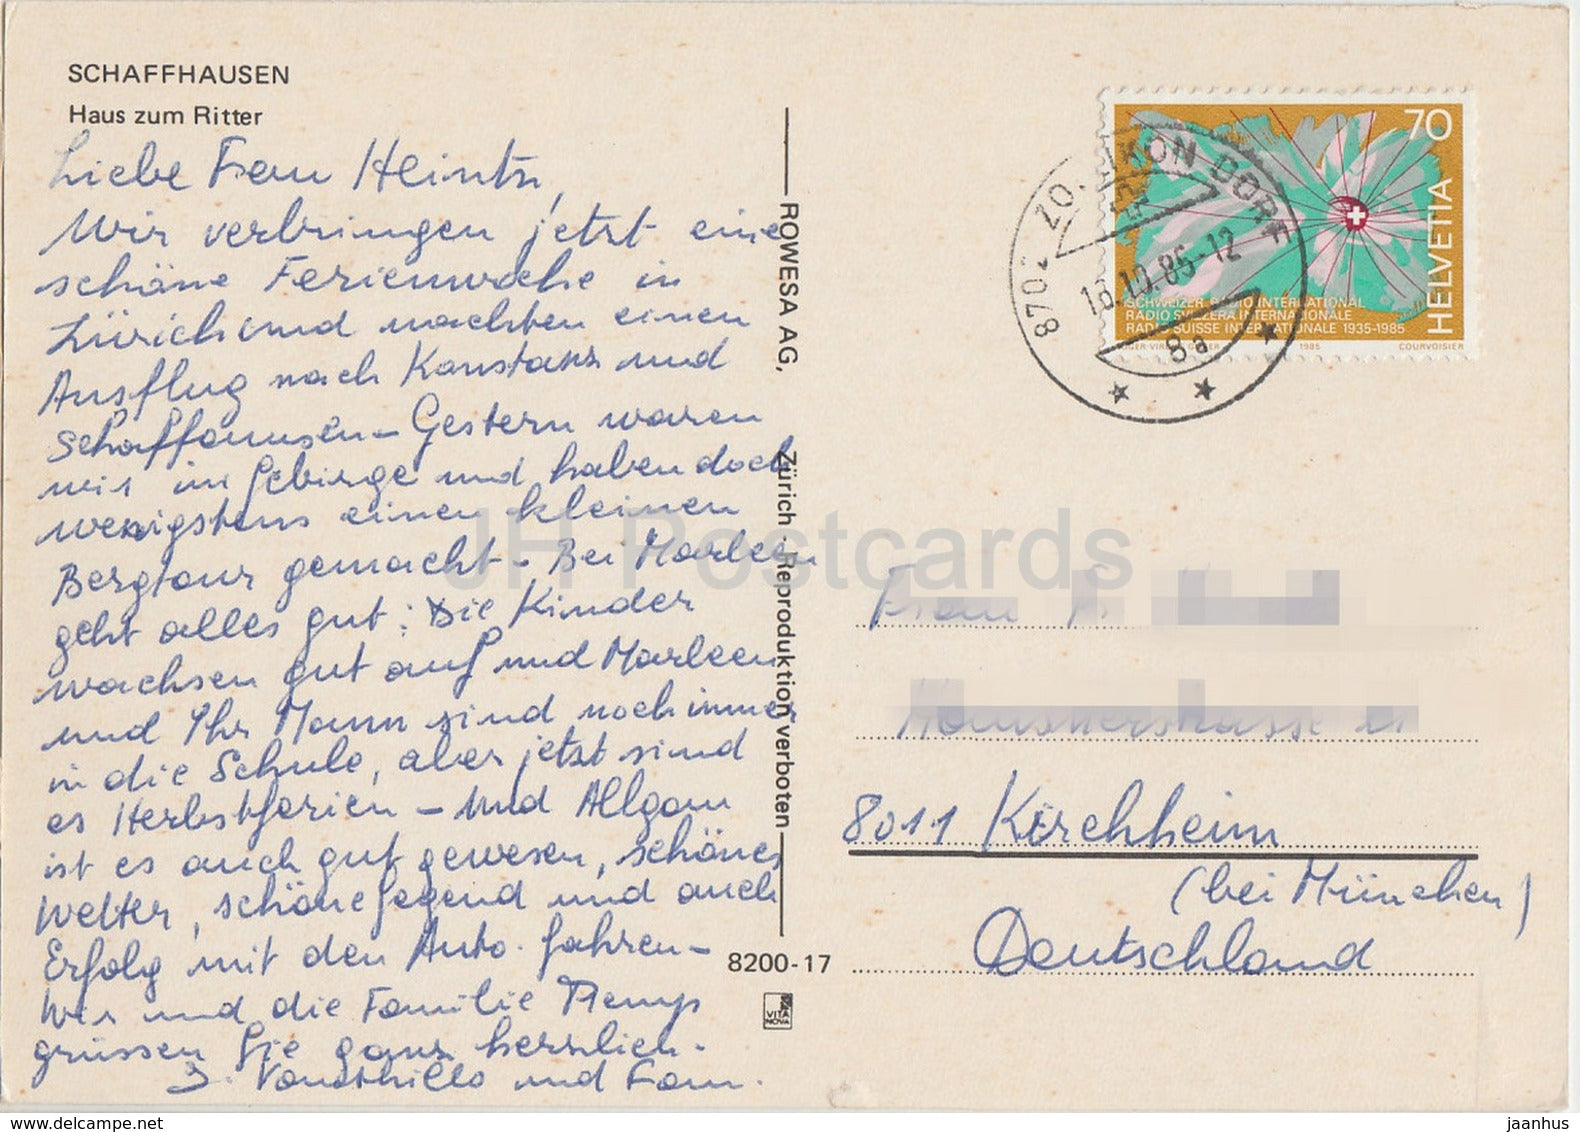 SCHAFFHAUSEN
Haus zum Ritter
Liebe Frau Heintz,
Wir verbringen jetzt eine
schöne Ferienwoche in
Zürich und machten einen
Ausflug nach Konstanz und
Schaffausen - Gestern waren
wir im Gebirge und haben doch
wenigstens einen kleinen
Bergtour gemacht - Bei Marleen
geht alles gut : Die Kinder
wachsen gut auf und Marleen
und Ihr Mann sind noch immer
in die Schule, aber jetzt sind
es Herbstferien - und Allgau
ist es auch gut gewesen, schönes
Wetter, schöne Gegend und auch
Erfolg mit den Auto-fahren -
Wir und die Familie
grüssen Sie ganz herzlich.
und Fam.
ROWESA AG, Zürich · Reproduktion verboten
8200-17
VITA
NOVA
8702 ZOLLIKON DORF
18.10.85-12
8a
70
HELVETIA
SCHWEIZER RADIO INTERNATIONAL
RADIO SVIZZERA INTERNAZIONALE
RADIO SUISSE INTERNATIONALE 1935-1985
1985
COURVOISIER
Frau
8011 Kirchheim
(bei München)
Deutschland
JH Postcards
delcampe.net
jaanhus